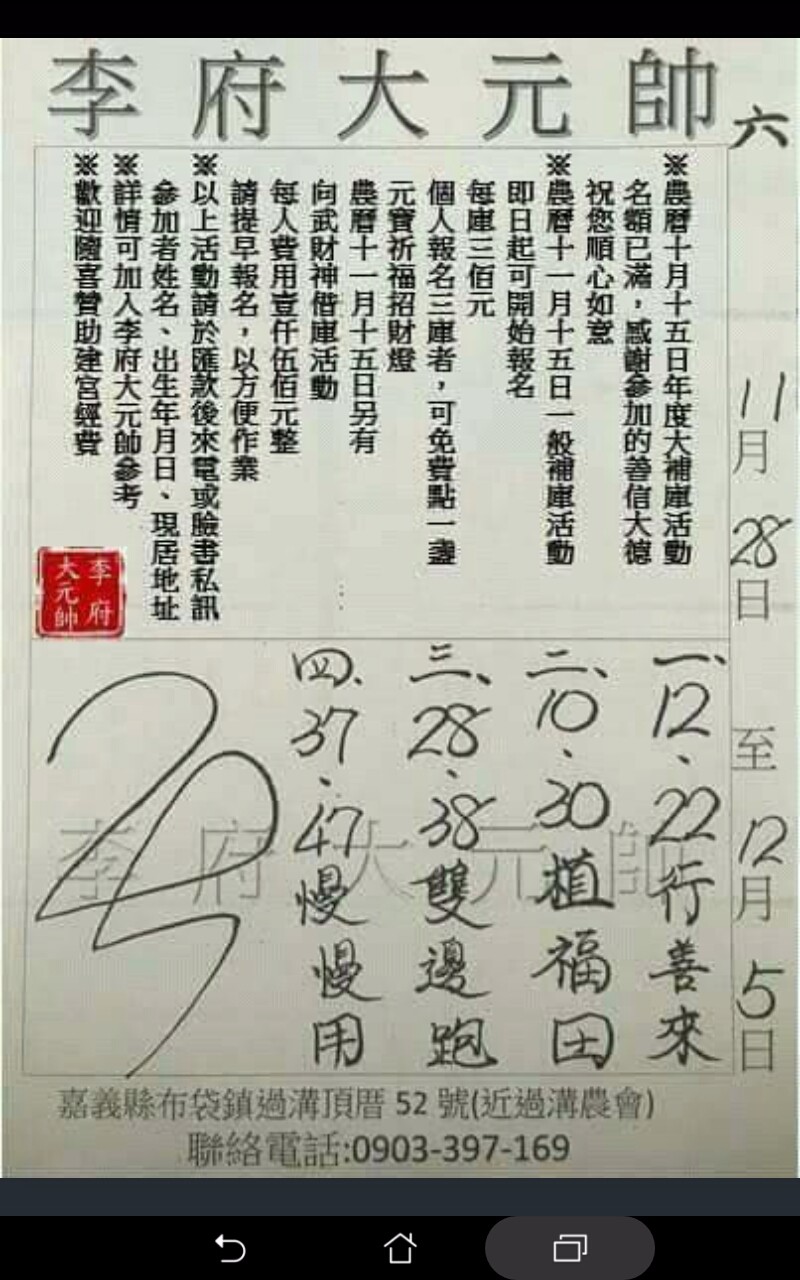 李府大元帥
六
11月28日至12月5日
※農曆十月十五日年度大補庫活動
名額已滿，感謝參加的善信大德
祝您順心如意
※農曆十一月十五日一般補庫活動
即日起可開始報名
每庫三佰元
個人報名三庫者，可免費點一盞
元寶祈福招財燈
農曆十一月十五日另有
向武財神借庫活動
每人費用壹仟伍佰元整
請提早報名，以方便作業
※以上活動請於匯款後來電或臉書私訊
參加者姓名、出生年月日、現居地址
※詳情可加入李府大元帥參考
※歡迎隨喜贊助建宮經費
李府
大元帥
一、12、22行善來
二、10、30植福田
三、28、38雙邊跑
四、37、47慢慢用
李府大元帥
嘉義縣布袋鎮過溝頂厝 52 號(近過溝農會)
聯絡電話:0903-397-169